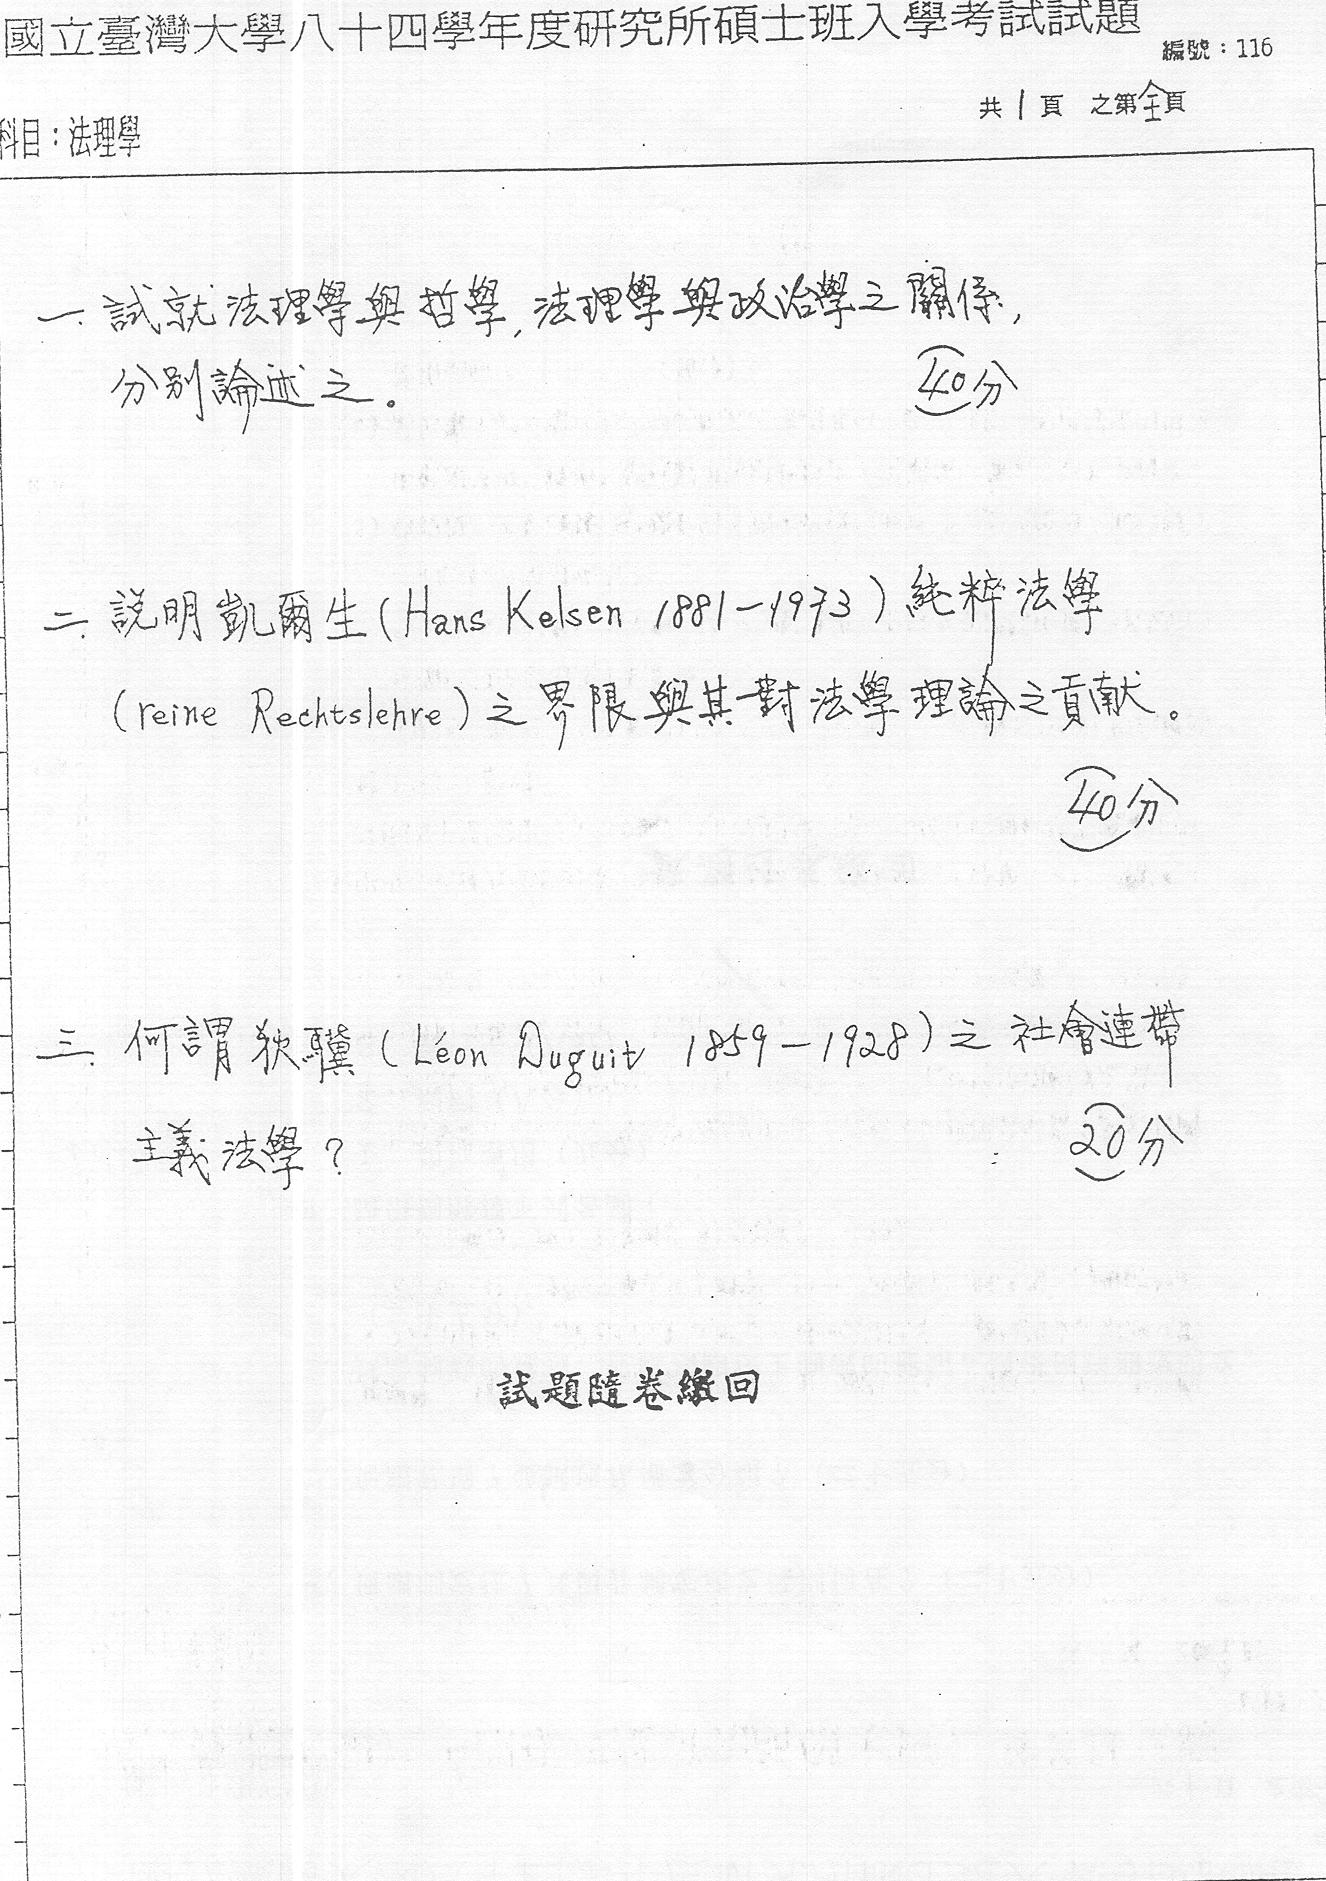 國立臺灣大學八十四學年度研究所碩士班入學考試試題
編號：116
共 1 頁 之第全頁
科目：法理學
一. 試就法理學與哲學, 法理學與政治學之關係,
分別論述之。 (40分)
二. 說明凱爾生(Hans Kelsen 1881-1973)純粹法學
(reine Rechtslehre)之界限與其對法學理論之貢献。
(40分)
三. 何謂狄驥(Léon Duguit 1859-1928)之社會連帶
主義法學? (20分)
試題隨卷繳回